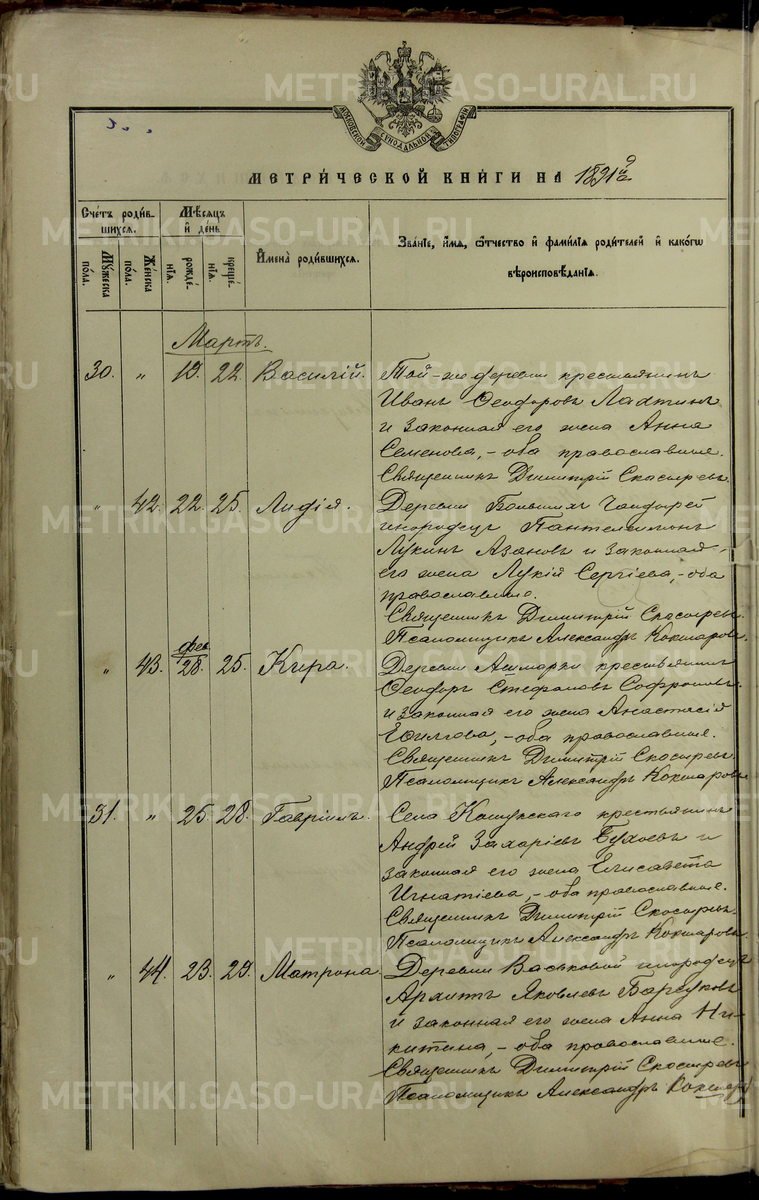 МОСКОВСКОЙ СѴНОДАЛЬНОЙ ТИПОГРАФІИ
МЕТРИ́ЧЕСКОЙ КНИ́ГИ НА 1891 й г.
Сче́тъ роди́вшихся.
Мꙋ́жеска по́ла.
Же́нска по́ла.
Мѣ́сяцъ и҆ де́нь
рожде́нїѧ.
креще́нїѧ.
И҆мена̀ роди́вшихсѧ.
Зва́нїе, и҆́мѧ, ѻ҆́тчество и҆ фами́лїѧ роди́телей и҆ како́гѡ
вѣроисповѣ́данїѧ.
Мартъ.
30. " 19. 22. Василій. Той-же деревни крестьянинъ
Иванъ Ѳеодоровъ Лаптинъ
и законная его жена Анна
Семенова, - оба православные.
Священникъ Димитрій Скосыревъ.
" 42. 22. 25. Лидія. Деревни Большихъ
инородецъ Пантелеимонъ
Лукинъ Азановъ и законная
его жена Лукія Сергіева, - оба
православные.
Священникъ Димитрій Скосыревъ.
Псаломщикъ Александръ Кокшаровъ.
" 43. фев. 28. 25. Кира. Деревни Ашмарки крестьянинъ
Ѳеодоръ Стефановъ Софроновъ
и законная его жена Анастасія
- оба православные.
Священникъ Димитрій Скосыревъ.
Псаломщикъ Александръ Кокшаровъ
31. " 25. 28. Гавріилъ. Села Кошукскаго крестьянинъ
Андрей Захаріевъ Бухоевъ и
законная его жена Елисавета
Игнатіева, - оба православные.
Священникъ Димитрій Скосыревъ.
Псаломщикъ Александръ Кокшаровъ.
" 44. 23. 29. Матрона. Деревни Васьковой инородецъ
Архипъ Яковлевъ Барсуковъ
и законная его жена Анна Ни-
китина, - оба православные.
Священникъ Димитрій Скосыревъ
Псаломщикъ Александръ Кокшаровъ
METRIKI.GASO-URAL.RU